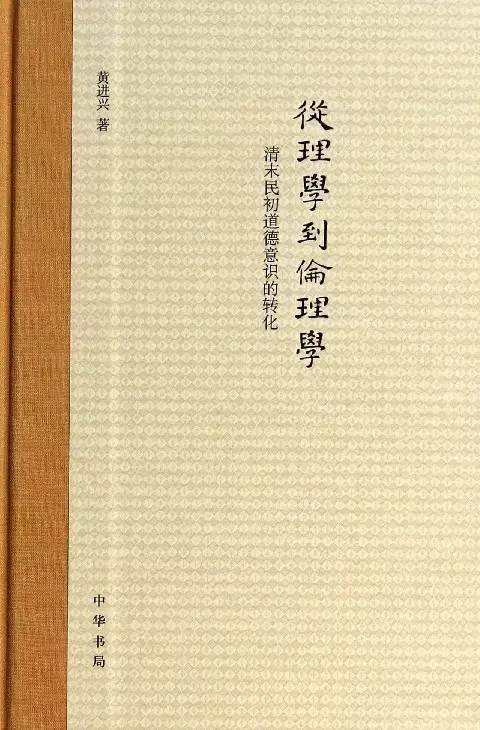 從理學到倫理學
清末民初道德意识的转化
黄进兴 著
中华书局